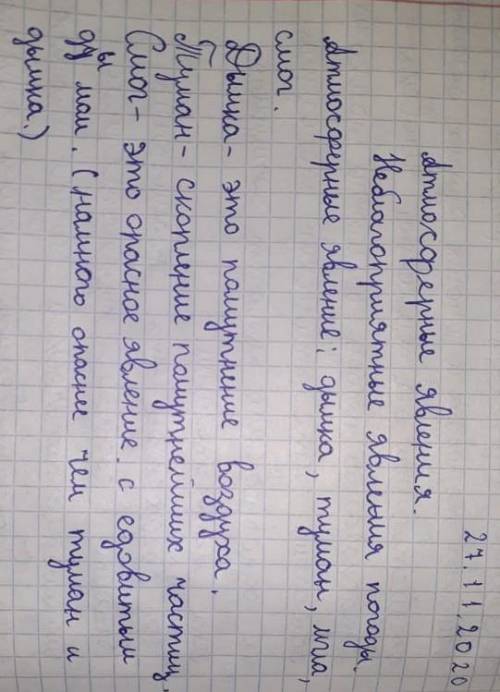 27.11.2020
Атмосферные явления.
Неблагоприятные явления погоды.
Атмосферные явление: дымка, туман, мгла,
смог.
Дымка - это памутнение воздуха.
Туман - скопление памутнейших частиц.
Смог - это опасное явление с едовитым
ды мом. (намного опаснее чем туман и
дымка.)